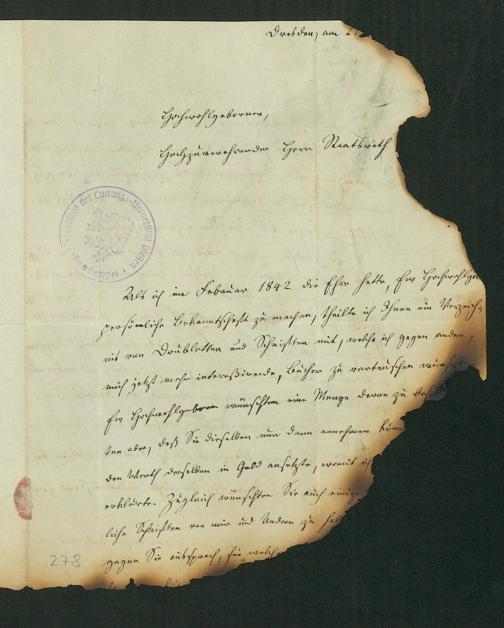 Dresden, am 2
Hochwohlgeborner,
Hochzuverehrender Herr Staatsrath
Als ich im Februar 1842 die Ehre hatte, Ew Hochwohlge
persönliche Bekanntschaft zu machen, theilte ich Ihnen ein Verzeich-
nis von Doubletten und Schriften mit, welche ich gegen andre,
mich jetzt mehr interessirende, Bücher zu vertauschen wünsch
Ew Hochwohlgeboren wünschten eine Menge davon zu
ten aber, daß Sie dieselben nur dann annehmen kön
den Werth derselben in Geld ansetzte, womit ich
erklärte. Zugleich wünschten Sie auch einige
liche Schriften von mir und Andern zu
gegen Sie aussprach, für welche
der Ludwigs-Universität Giessen
278